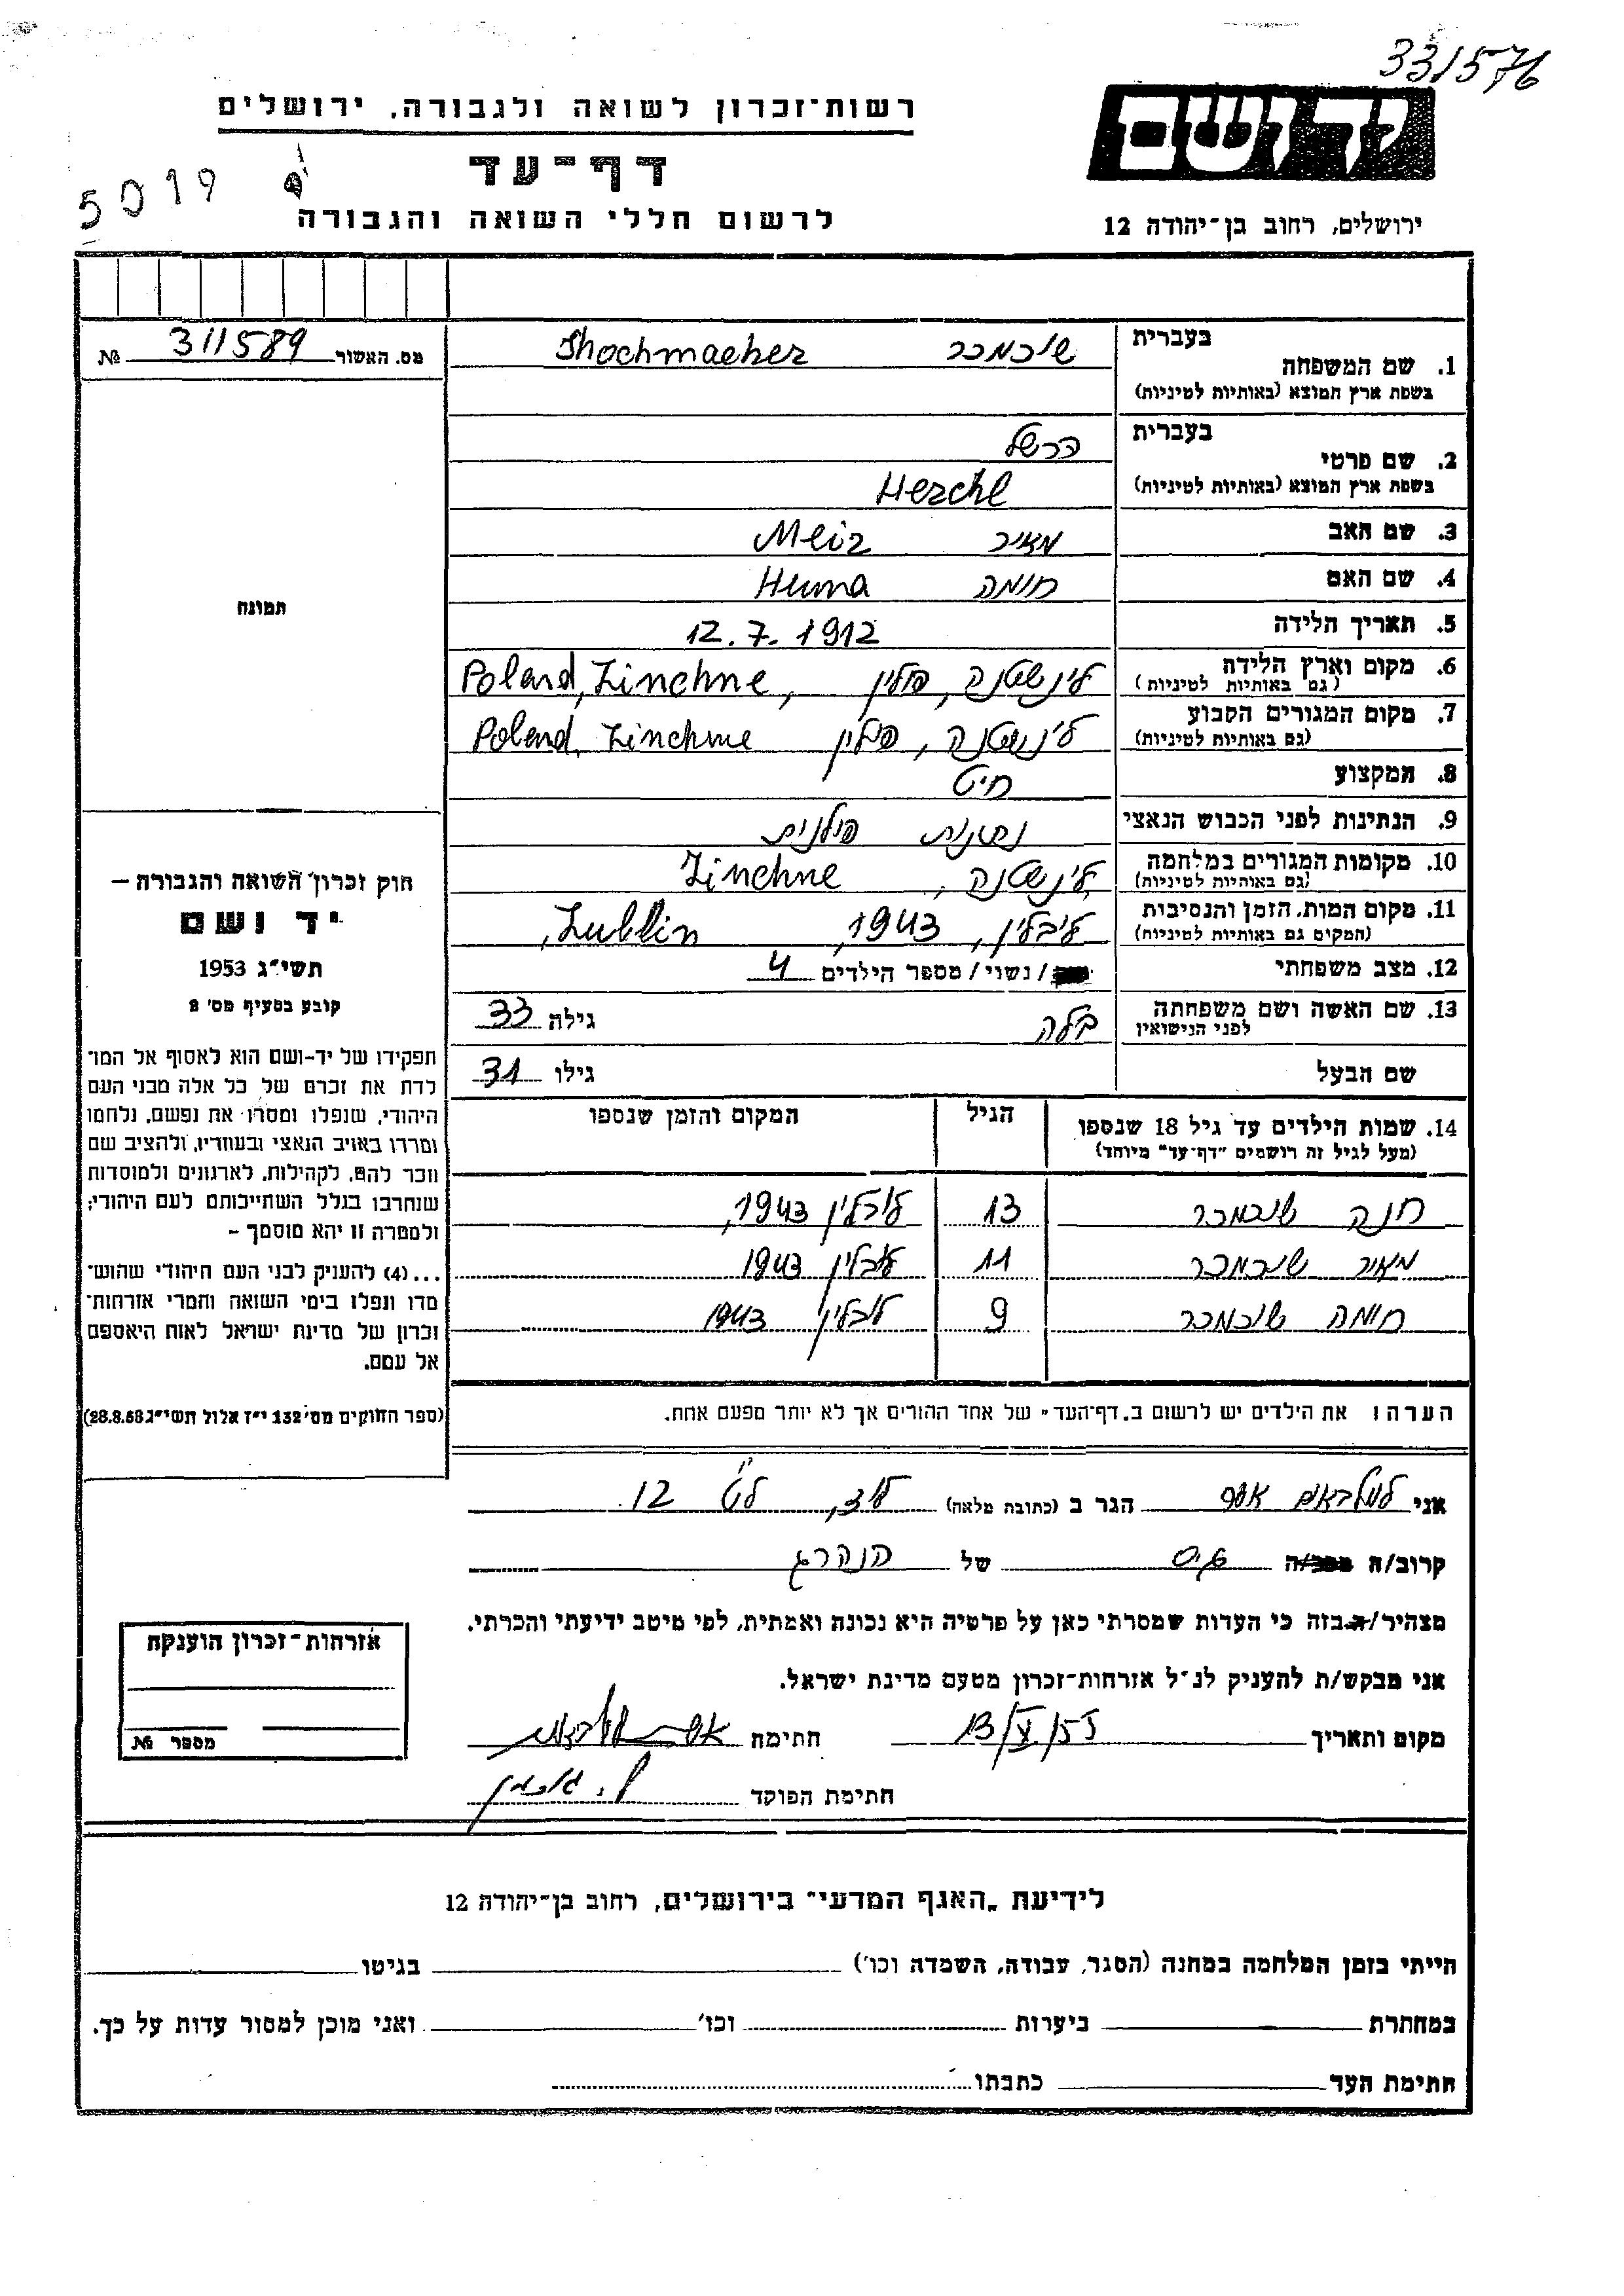 331576
יד ושם
רשות־זכרון לשואה ולגבורה, ירושלים
דף־עד
5019
לרשום חללי השואה והגבורה
ירושלים, רחוב בן־יהודה 12
מס. האשור 311589 №
1. שם המשפחה
בעברית
שוכמכר Shochmacher
בשפת ארץ המוצא (באותיות לטיניות)
2. שם פרטי
בעברית
הרשל
בשפת ארץ המוצא (באותיות לטיניות)
Herchl
3. שם האב מאיר Meir
4. שם האם חומה Huma
5. תאריך הלידה 12.7.1912
6. מקום וארץ הלידה
(גם באותיות לטיניות)
לינשטנה, פולין, Poland, Linchne
7. מקום המגורים הקבוע
(גם באותיות לטיניות)
לינשטנה, פולין Poland, Linchne
8. המקצוע חיט
9. הנתינות לפני הכבוש הנאצי נתינות פולנית
10. מקומות המגורים במלחמה
(גם באותיות לטיניות)
לינשטנה, Linchne
11. מקום המות, הזמן והנסיבות
(המקום גם באותיות לטיניות)
לובלין, 1943, Lublin,
12. מצב משפחתי / נשוי / מספר הילדים 4
13. שם האשה ושם משפחתה
לפני הנישואין
בלה גילה 33
שם הבעל גילו 31
14. שמות הילדים עד גיל 18 שנספו
(מעל לגיל זה רושמים "דף־עד" מיוחד)
הגיל
המקום והזמן שנספו
חנה שוכמכר 13 לובלין 1943,
מאיר שוכמכר 11 לובלין 1943
חומה שוכמכר 9 לובלין 1943
הערה: את הילדים יש לרשום ב„דף־העד" של אחד ההורים אך לא יותר מפעם אחת.
תמונה
חוק זכרון השואה והגבורה –
יד ושם
תשי"ג 1953
קובע בסעיף מס' 2
תפקידו של יד-ושם הוא לאסוף אל המו־
לדת את זכרם של כל אלה מבני העם
היהודי, שנפלו ומסרו את נפשם, נלחמו
ומרדו באויב הנאצי ובעוזריו, ולהציב שם
וזכר להם, לקהילות, לארגונים ולמוסדות
שנחרבו בגלל השתייכותם לעם היהודי;
ולמטרה זו יהא מוסמך –
...(4) להעניק לבני העם היהודי שהוש־
מדו ונפלו בימי השואה והמרי אזרחות־
זכרון של מדינת ישראל לאות היאספם
אל עמם.
(ספר החוקים מס' 132 י"ז אלול תשי"ג 28.8.53)
אני אסף הגר ב (כתובת מלאה) 12
קרוב/ה גיס של הנהרג
מצהיר/ה בזה כי העדות שמסרתי כאן על פרטיה היא נכונה ואמתית, לפי מיטב ידיעתי והכרתי.
אני מבקש/ת להעניק לנ"ל אזרחות־זכרון מטעם מדינת ישראל.
מקום ותאריך 13/X/55 חתימה
חתימת הפוקד
אזרחות־זכרון הוענקה
מספר №
לידיעת „האגף המדעי" בירושלים, רחוב בן־יהודה 12
הייתי בזמן המלחמה במחנה (הסגר, עבודה, השמדה וכו') בגיטו
במחתרת ביערות וכו' ואני מוכן למסור עדות על כך.
חתימת העד כתבתו